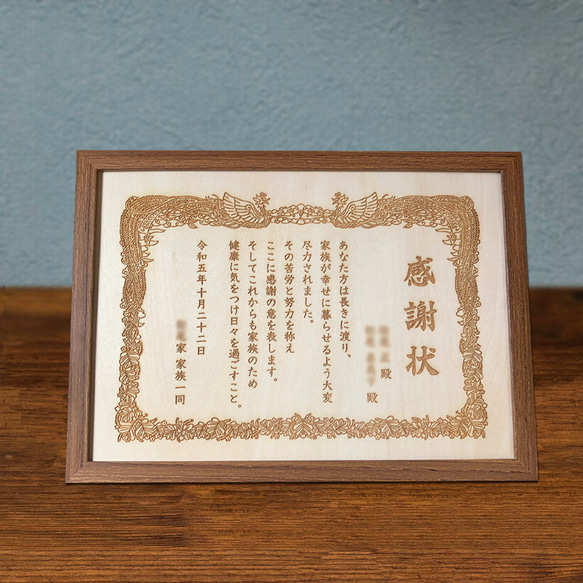 感謝状
殿
殿
あなた方は長きに渡り、
家族が幸せに暮らせるよう大変
尽力されました。
その苦労と努力を称え
ここに感謝の意を表します。
そしてこれからも家族のため
健康に気をつけ日々を過ごすこと。
令和五年十月二十二日
家 家族一同